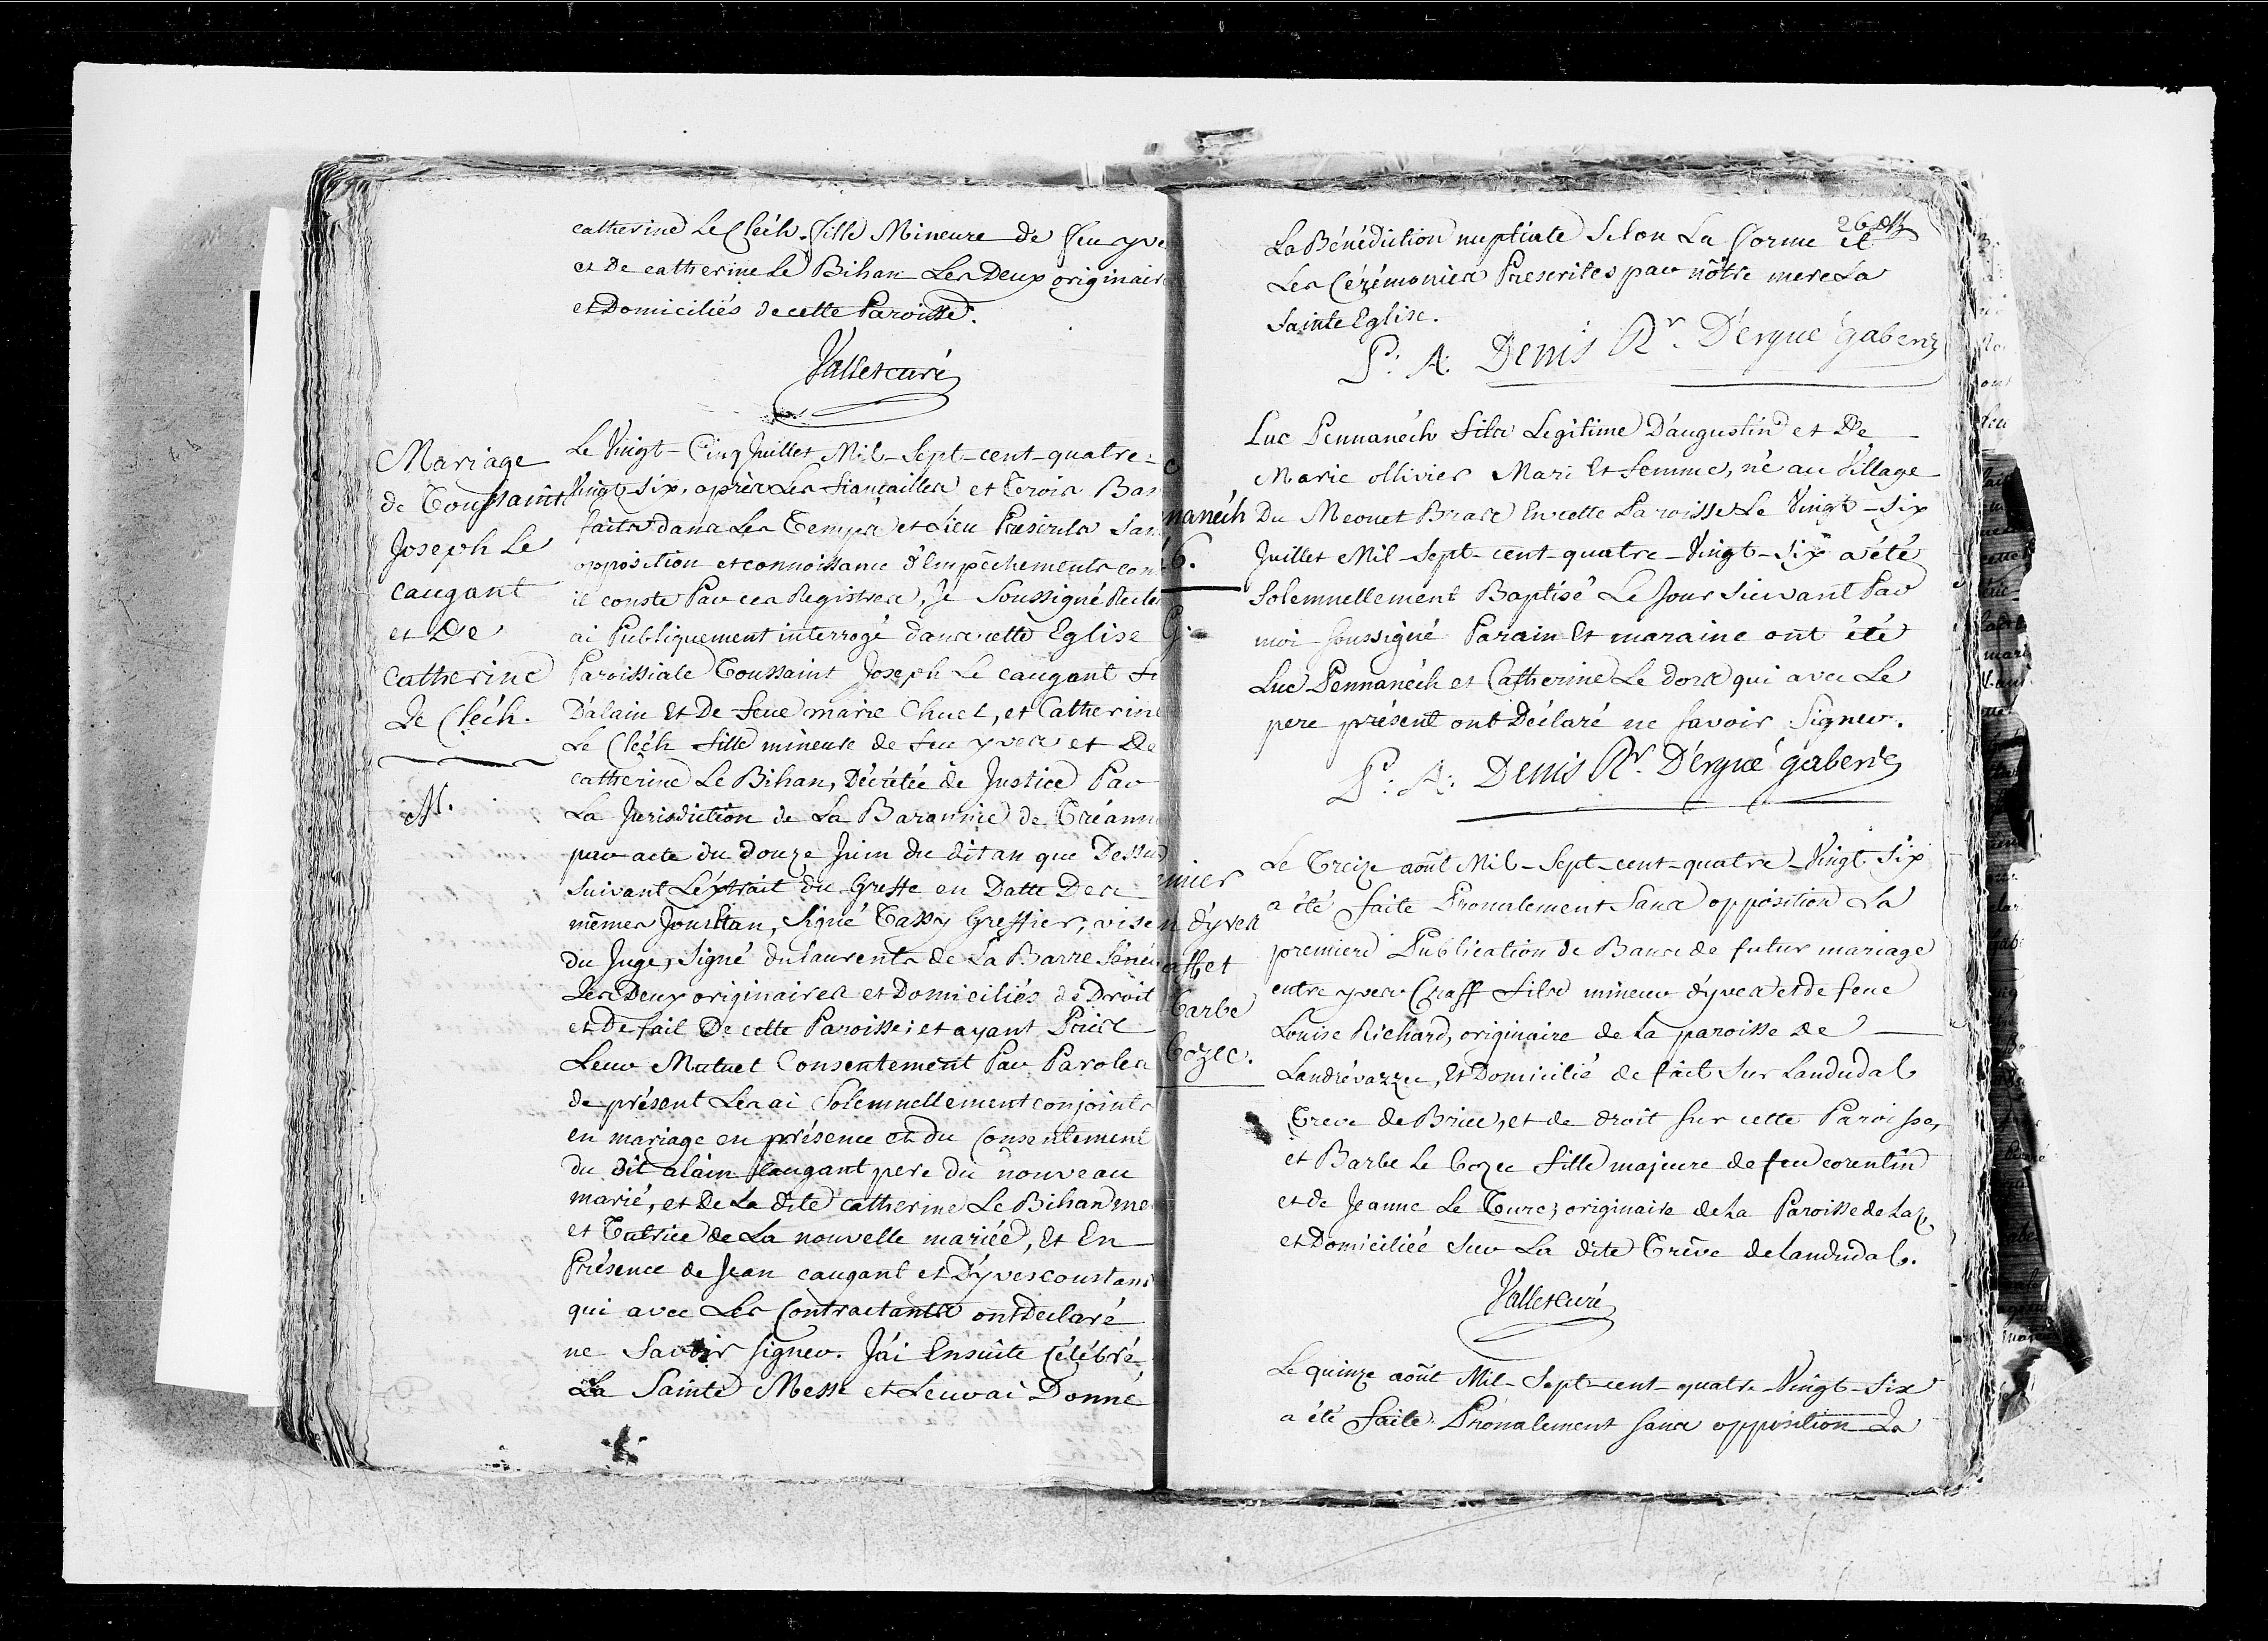 catherine Le Cléch. fille Mineure de feu yve
et De catherine Le Bihan Les Deux originaire
et Domiciliés de cette Paroisse.
Vallet curé
Mariage
de Toussaint
Joseph Le
caugant
et De
Catherine
Le Cléch.
M.
Le Vingt-Cinq Juillet Mil-Sept-cent-quatre-
Vingt-Six, après Les fiançailles et Trois Ban
faits dans Les Temps et Lieu Prescrits San
opposition et connoissance d'Empêchements com
il conste Par ces Registres, Je Soussigné Recte
ai Publiquement interrogé dans cette Eglise
Paroissiale Toussaint Joseph Le caugant fi
D'alain Et De feue marie Chuet, et Catherine
Le Cléch fille mineure de feu yves et De
catherine Le Bihan, Décrétée de Justice Par
La Jurisdiction de La Baronnie de Tréann
par acte du Douze Juin du dit an que Dessus
Suivant L'extrait du Greffe en Datte Des
mêmes Jour Et an, Signé Tassy Greffier, vise
du Juge, Signé dulaurents de La Barre Séné
Les Deux originaires et Domiciliés de Droit
et De fait De cette Paroisse; et ayant Pris
Leur Mutuel Consentement Par Paroles
de présent Les ai Solemnellement conjoints
en mariage en présence et du Consentement
du dit alain caugant pere du nouveau
marié, et de La dite catherine Le Bihan me
et Tutrice de La nouvelle mariée, Et En
Présence de Jean caugant et D'yves coustans
qui avec Les Contractants ont Declaré
ne Savoir Signer. J'ai Ensuite Célébré
La Sainte Messe et Leur ai Donné
nanéch
6.
G.
nier
n d'yves
aff et
Barbe
Cozec.
26
La Bénédiction nuptiale Selon La forme et
Les Cérémonies Prescrites par nôtre mere La
Sainte Eglise.
P: A: Denis Rr. D'ergué gaberic
Luc Pennanéch fils Legitime D'augustin et De
Marie ollivier Mari Et femme, né au Village
Du Meouet Bras En cette Paroisse Le Vingt-Six
Juillet Mil-Sept-cent-quatre-Vingt-Six a été
Solemnellement Baptisé Le Jour Suivant Par
moi Soussigné Parain Et maraine ont été
Luc Pennanéch et Catherine Le dors qui avec Le
pere présent ont Déclaré ne Savoir Signer.
P: A: Denis Rr. D'ergué gaberic
Le Treize août Mil-Sept-cent-quatre-Vingt-Six
a été faite Pronalement Sans opposition La
premiere Publication de Bans de futur mariage
entre yves Craff fils mineur d'yves et de feue
Louise Richard, originaire de La paroisse de
Landrévarzec, Et Domicilié de fait Sur Landudal
Treve de Briec, et de droit Sur cette Paroisse,
et Barbe Le Cozec fille majeure de feu corentin
et de Jeanne Le Turc, originaire de La Paroisse de Laz,
et Domiciliée Sur La dite Trêve de Landudal.
Vallet curé
Le quinze août Mil-Sept-cent-quatre-Vingt-Six
a été faite Pronalement Sans opposition La